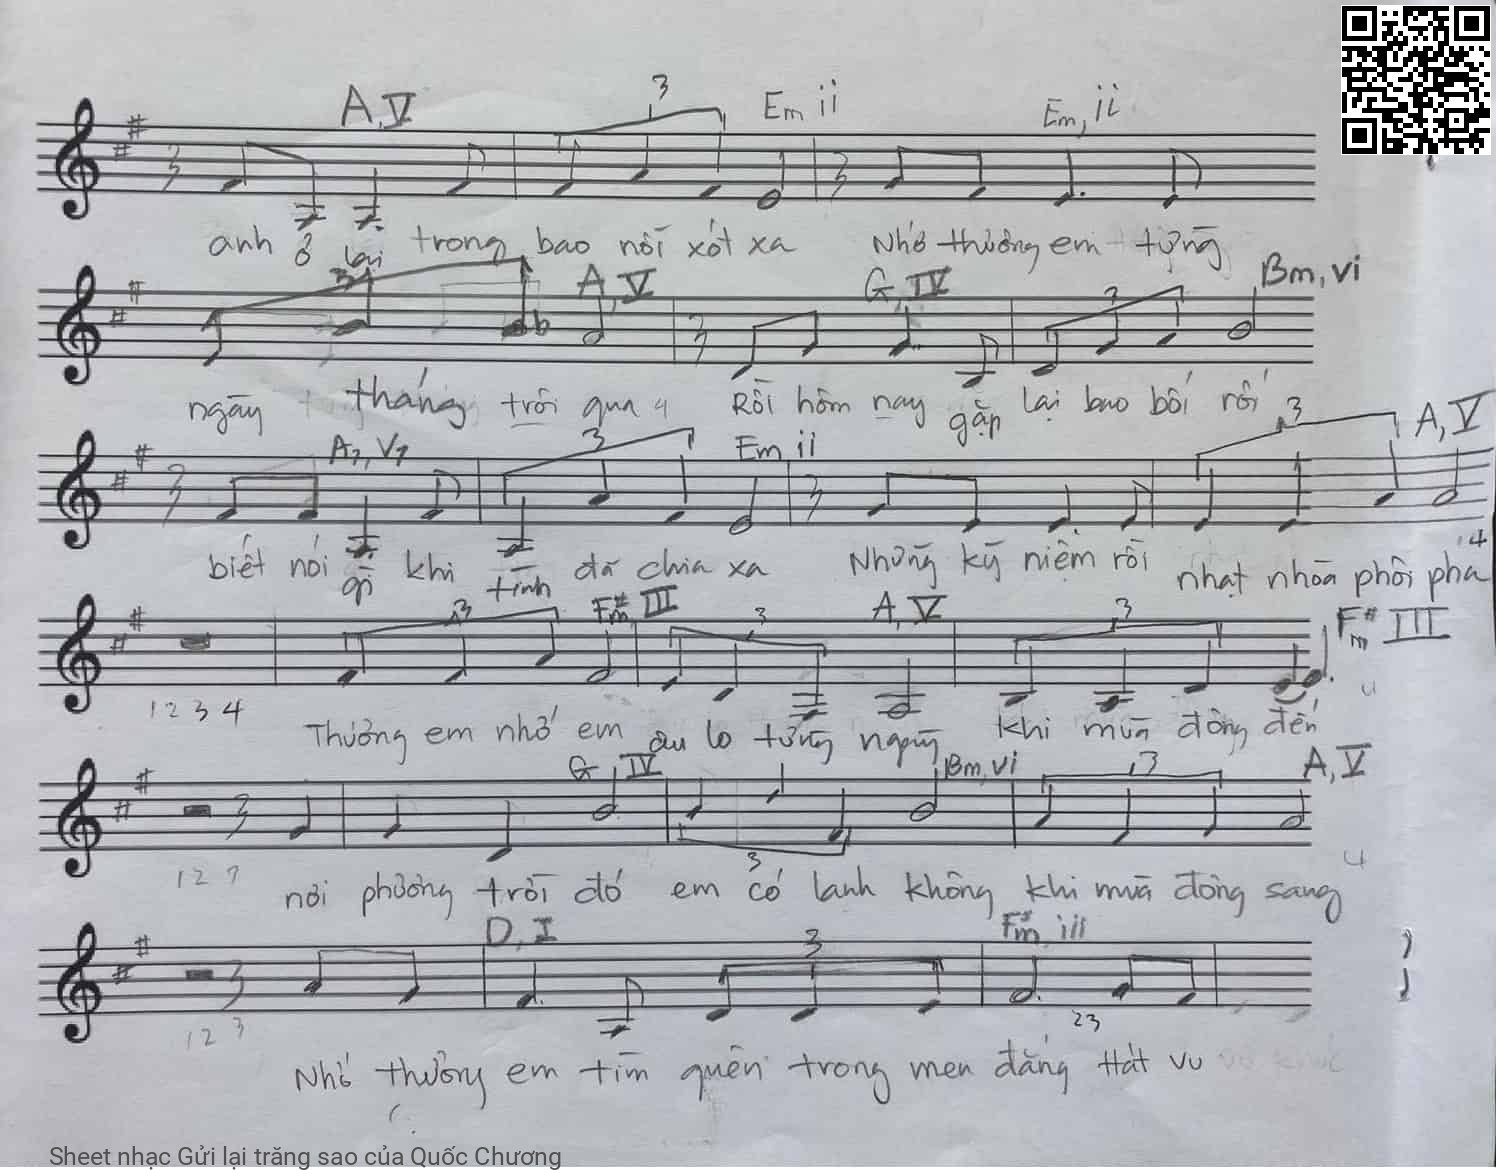 A, V 3 Em ii Em, ii
anh ở lại trong bao nỗi xót xa Nhớ thương em từng
3 A, V G, IV 3 Bm, vi
ngày tháng trôi qua 4 Rồi hôm nay gặp lại bao bối rối
A7, V7 3 Em ii 3 A, V
biết nói gì khi tình đã chia xa Những kỷ niệm rồi nhạt nhòa phôi pha 4
3 F#m III 3 A, V 3 F#m III
1 2 3 4 Thương em nhớ em âu lo từng ngày khi mùa đông đến 4
G, IV Bm, vi 3 A, V
1 2 3 nơi phương trời đó em có lạnh không khi mùa đông sang 4
D, I 3 F#m iii
1 2 3 23
Nhớ thương em tìm quên trong men đắng Hát vu
Sheet nhạc Gửi lại trăng sao của Quốc Chương